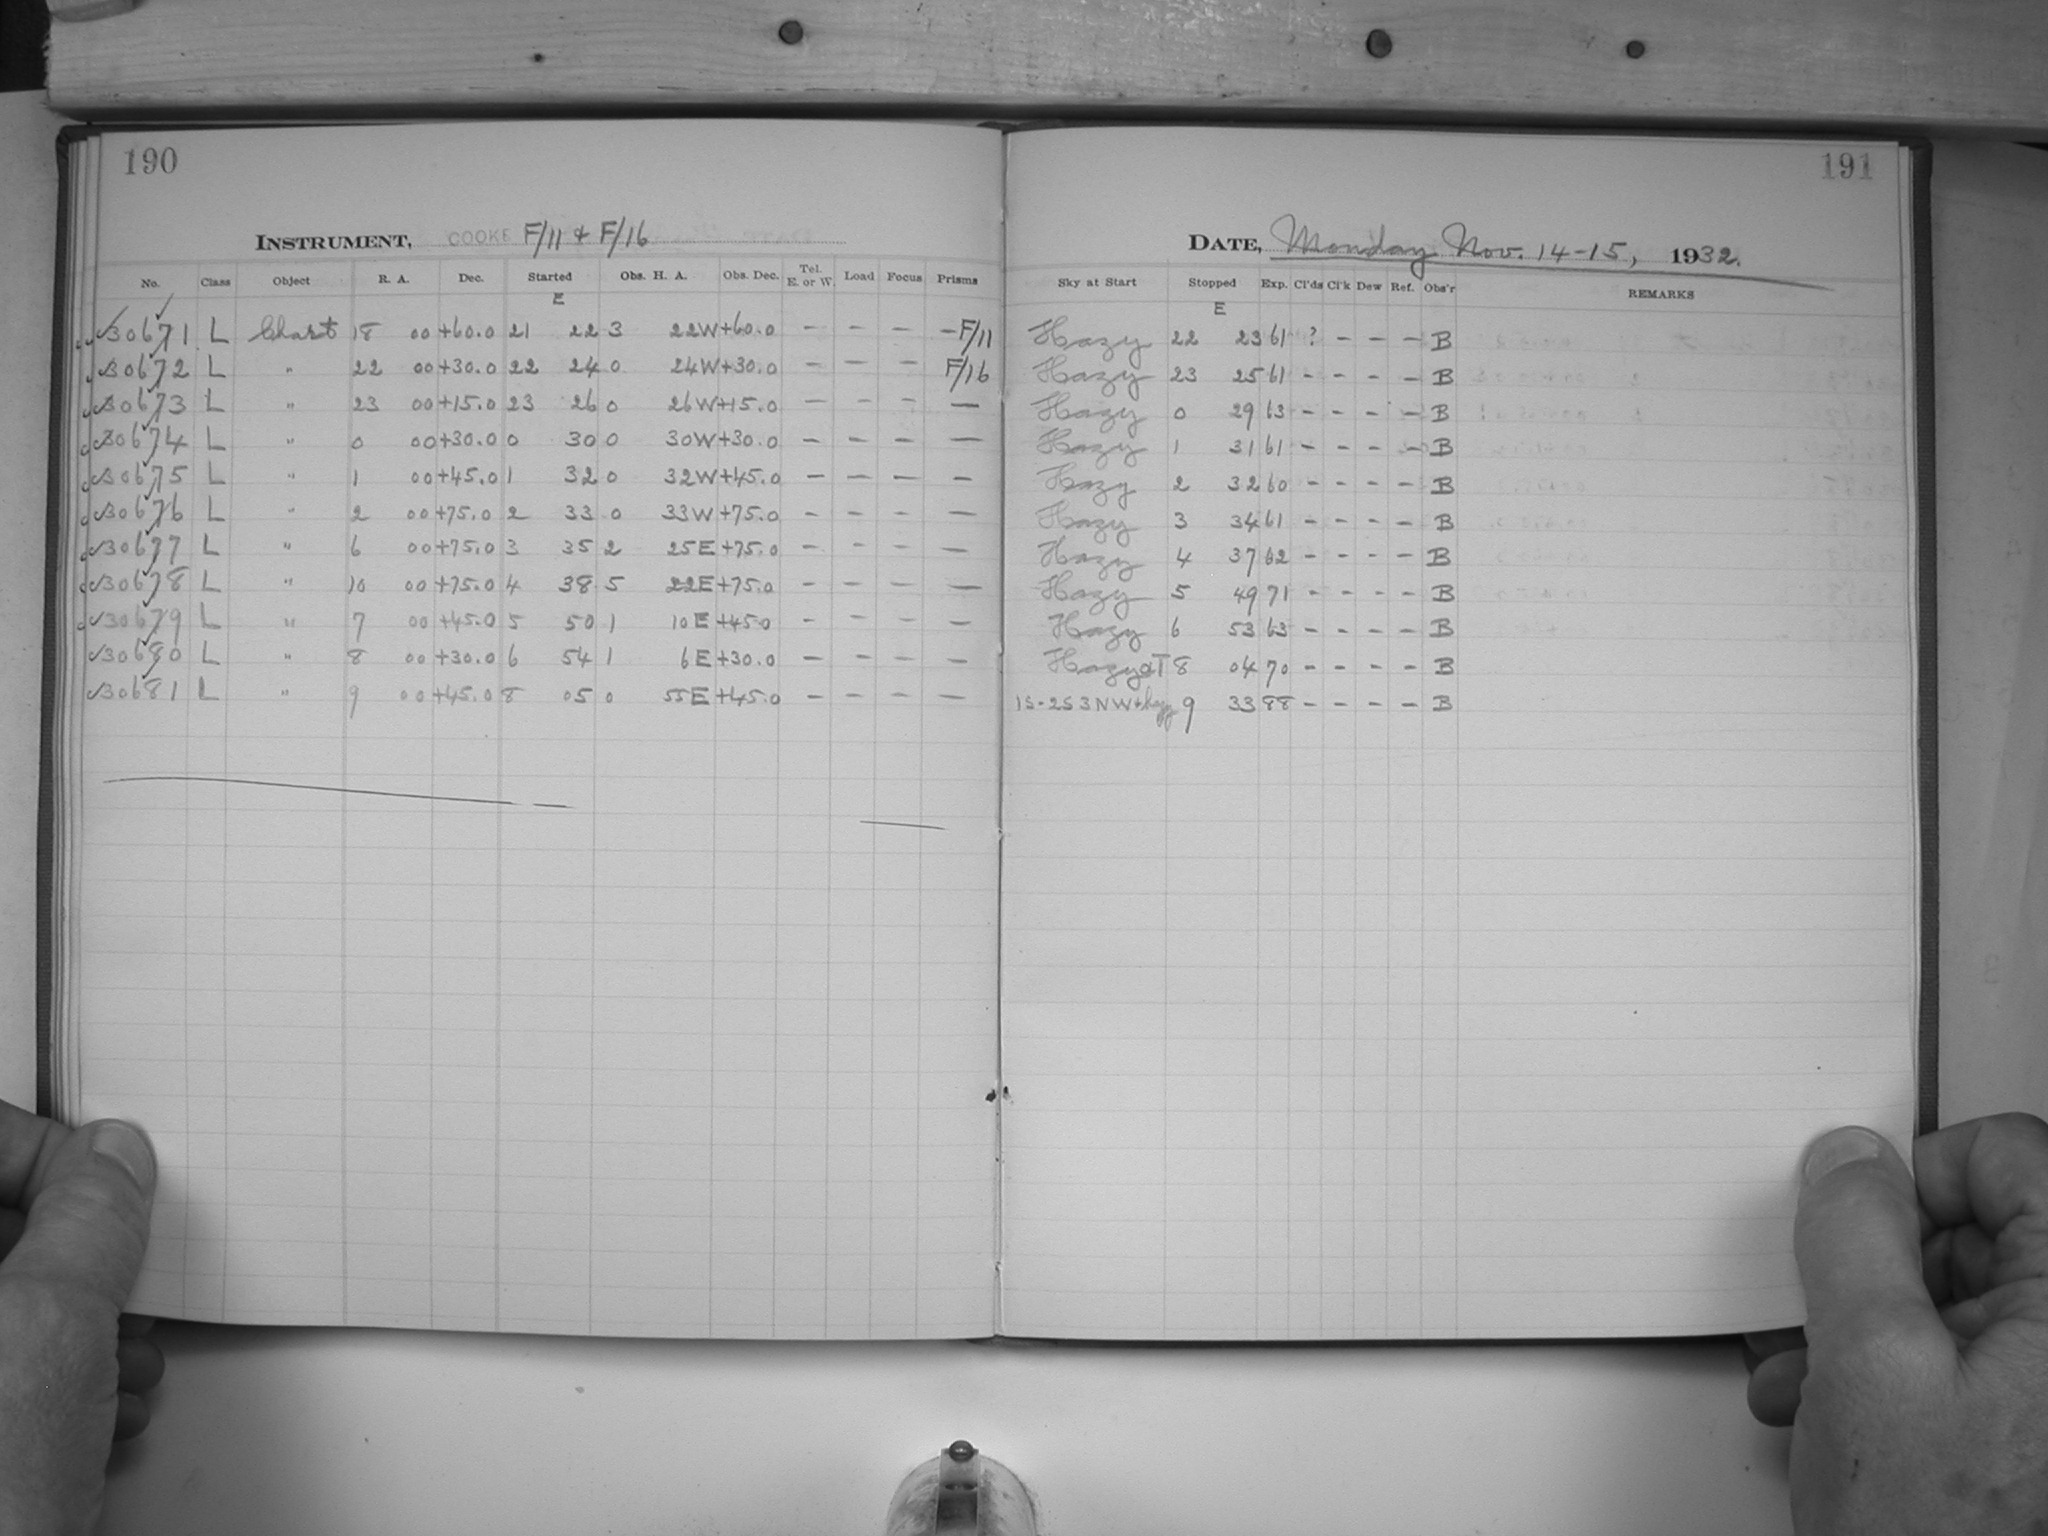 190
INSTRUMENT, COOKE F/11 & F/16
No. Class Object R. A. Dec. Started Obs. H. A. Obs. Dec. Tel. E. or W. Load Focus Prisms
E
30671 L Chart 18 00 +60.0 21 22 3 22W +60.0 - - - - F/11
30672 L " 22 00 +30.0 22 24 0 24W +30.0 - - - F/16
30673 L " 23 00 +15.0 23 26 0 26W +15.0 - - - -
30674 L " 0 00 +30.0 0 30 0 30W +30.0 - - - -
30675 L " 1 00 +45.0 1 32 0 32W +45.0 - - - -
30676 L " 2 00 +75.0 2 33 0 33W +75.0 - - - -
30677 L " 6 00 +75.0 3 35 2 25E +75.0 - - - -
30678 L " 10 00 +75.0 4 38 5 22E +75.0 - - - -
30679 L " 7 00 +45.0 5 50 1 10E +45.0 - - - -
30680 L " 8 00 +30.0 6 54 1 6E +30.0 - - - -
30681 L " 9 00 +45.0 8 05 0 55E +45.0 - - - -
191
DATE, Monday Nov. 14-15, 1932.
Sky at Start Stopped Exp. Cl'ds Cl'k Dew Ref. Obs'r REMARKS
E
Hazy 22 23 61 ? - - - B
Hazy 23 25 61 - - - - B
Hazy 0 29 63 - - - - B
Hazy 1 31 61 - - - - B
Hazy 2 32 60 - - - - B
Hazy 3 34 61 - - - - B
Hazy 4 37 62 - - - - B
Hazy 5 49 71 - - - - B
Hazy 6 53 63 - - - - B
Hazy 8 04 70 - - - - B
1S-2S 3NW + hazy 9 33 88 - - - - B